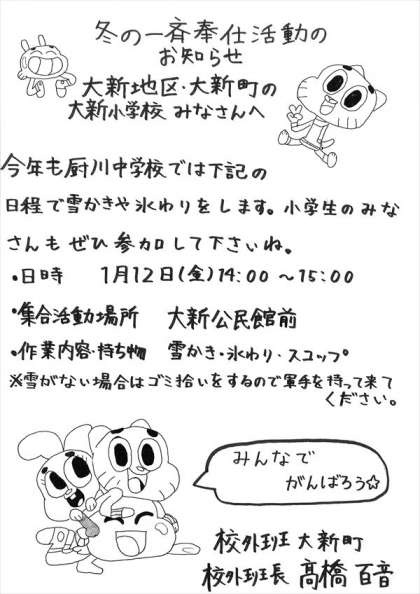 冬の一斉奉仕活動の
お知らせ
大新地区・大新町の
大新小学校 みなさんへ
今年も厨川中学校では下記の
日程で雪かきや氷わりをします。小学生のみな
さんもぜひ参加して下さいね。
・日時 1月12日(金)14:00 ～15:00
・集合活動場所 大新公民館前
・作業内容・持ち物 雪かき・氷わり・スコップ
※雪がない場合はゴミ拾いをするので軍手を持って来て
ください。
みんなで
がんばろう☆
校外班 大新町
校外班長 高橋 百音